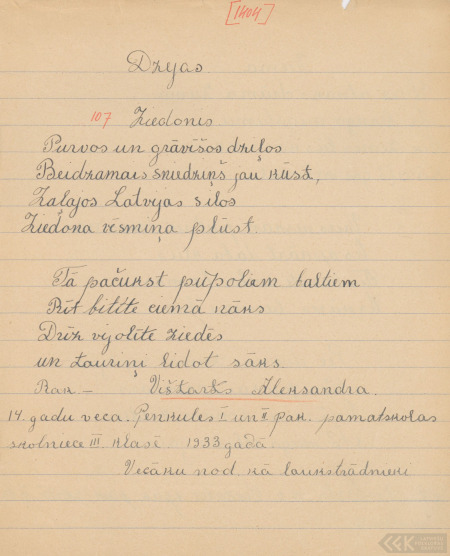 [1404]
Dzejas
107 Ziedonis
Purvos un grāvīšos dziļos
Beidzamais sniedziņš jau kūst,
Zaļajos Latvijas silos
Ziedoņa vēsmiņa plūst.
Tā pačukst pūpoliem baltiem
Rīt bitīte ciemā nāks
Drīz vijolīte ziedēs
un tauriņi lidot sāks.
Rak – Vištarts Aleksandra.
14. gadu veca. Penkules I un II pak. pamatskolas
skolniece III. klasē. 1933 gadā.
Vecāku nod. kā laukstrādnieki